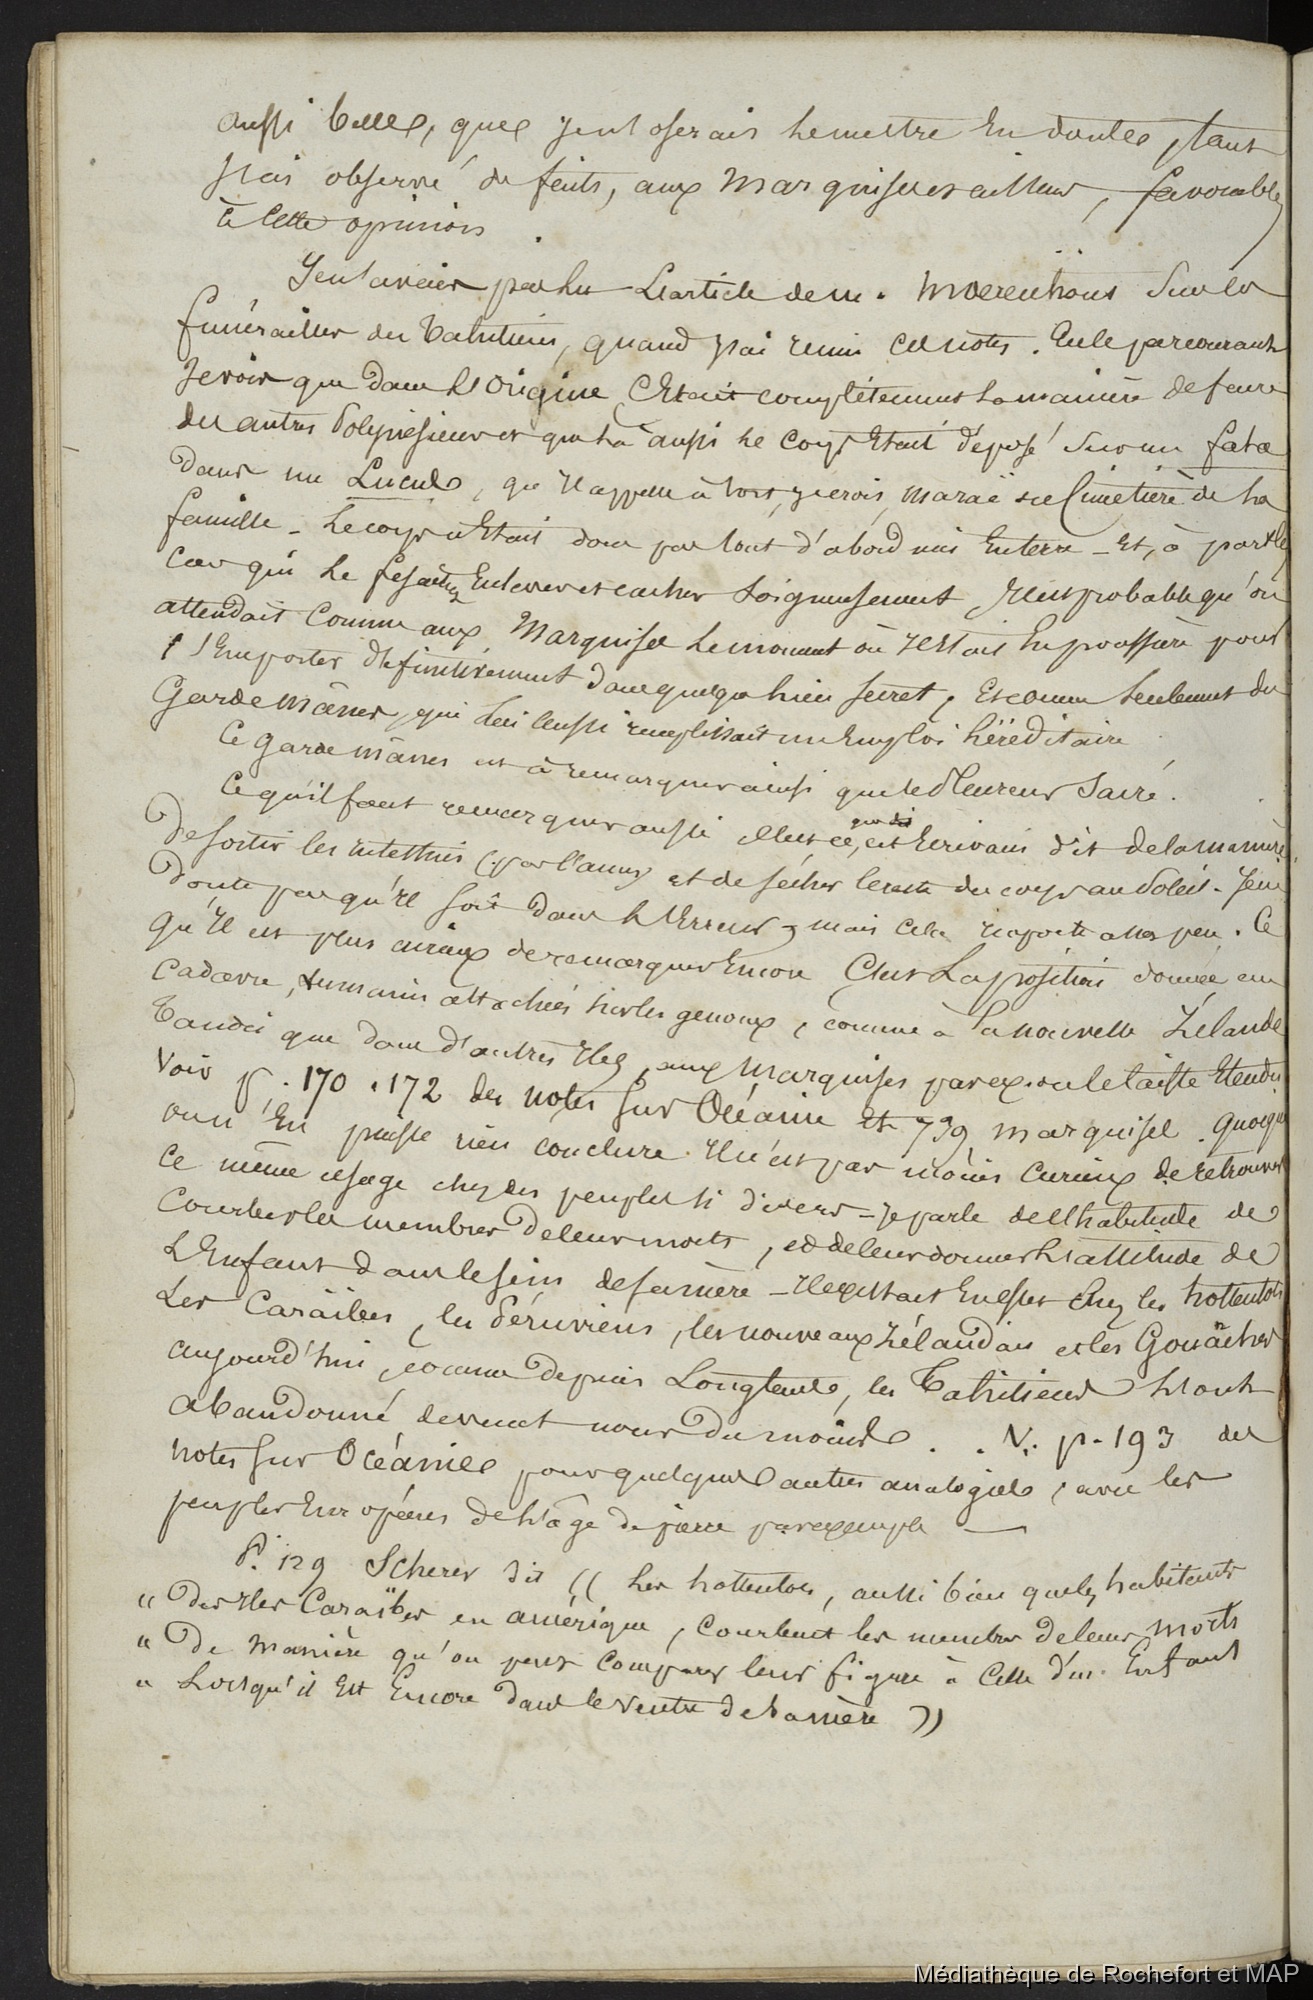 aussi belles, que je n'oserais le mettre en doute, tant
j'ai observé de faits, aux Marquises ailleurs, favorables
à cette opinion.
Je n'avais pas lu l'article de m. Moerenhout sur les
funérailles des Tahitiens, quand j'ai réuni ces notes. En le parcourant
je vois que dans l'origine, c'était complètement la manière de faire
des autres Polynésiens et que là aussi le corps était déposé sur un fata
dans un, qu'il appelle à tort, je crois, maraë ou Cimetière de la
famille - le corps n'était donc pas tout d'abord mis en terre - Et, à part les
cas qui le fesaient enlever et cacher soigneusement, il est probable qu'on
attendait comme aux Marquises le moment où il était en poussière pour
l'emporter définitivement dans quelque lieu secret, et connu seulement du
Garde mânes, qui lui aussi remplissait un emploi héréditaire.
Ce garde mânes est à remarquer ainsi que le Pleureur Sacré.
Ce qu'il faut remarquer aussi c'est ce, que cet Ecrivain dit de la manière
de sortir les intestins (par l'anus) et de sécher le reste du corps au soleil. Je ne
doute pas qu'il soit dans l'erreur, mais cela importe assez peu. Ce
qu'il est plus curieux de remarquer encore c'est la position donnée au
cadavre, les mains attachées sur les genoux, comme à la nouvelle Zélande
Tandis que dans d'autres iles, aux Marquises par ex. on le laisse étendu
Voir p. 170. 172 des notes sur Océanie et 739 marquises. Quoiqu'
on n'en puisse rien conclure il n'est pas moins curieux de retrouver
ce même usage chez des peuples si divers - je parle de l'habitude de
courber les membres de leurs morts, et de leur donner l'attitude de
l'Enfant dans le sein de sa mère - Il existait en effet chez les hottentots
Les Caraïbes, les Péruviens, les nouveaux Zélandais et les Gouanches
aujourd'hui, comme depuis longtemps, les Tahitiens l'ont
abandonné devant nous du moins. . V. p. 193 des
notes sur Océanie pour quelques autres analogies, avec les
peuples Européens de l'âge de pierre par exemple —
P. 129 Scherer dit (( les hottentots, aussi bien que les habitants
" Des Iles Caraïbes en amérique, courbent les membres de leurs morts
" De manière qu'on peut comparer leur figure à celle d'un Enfant
" Lorsqu'il Est Encore dans le ventre de sa mère ))
Médiathèque de Rochefort et MAP